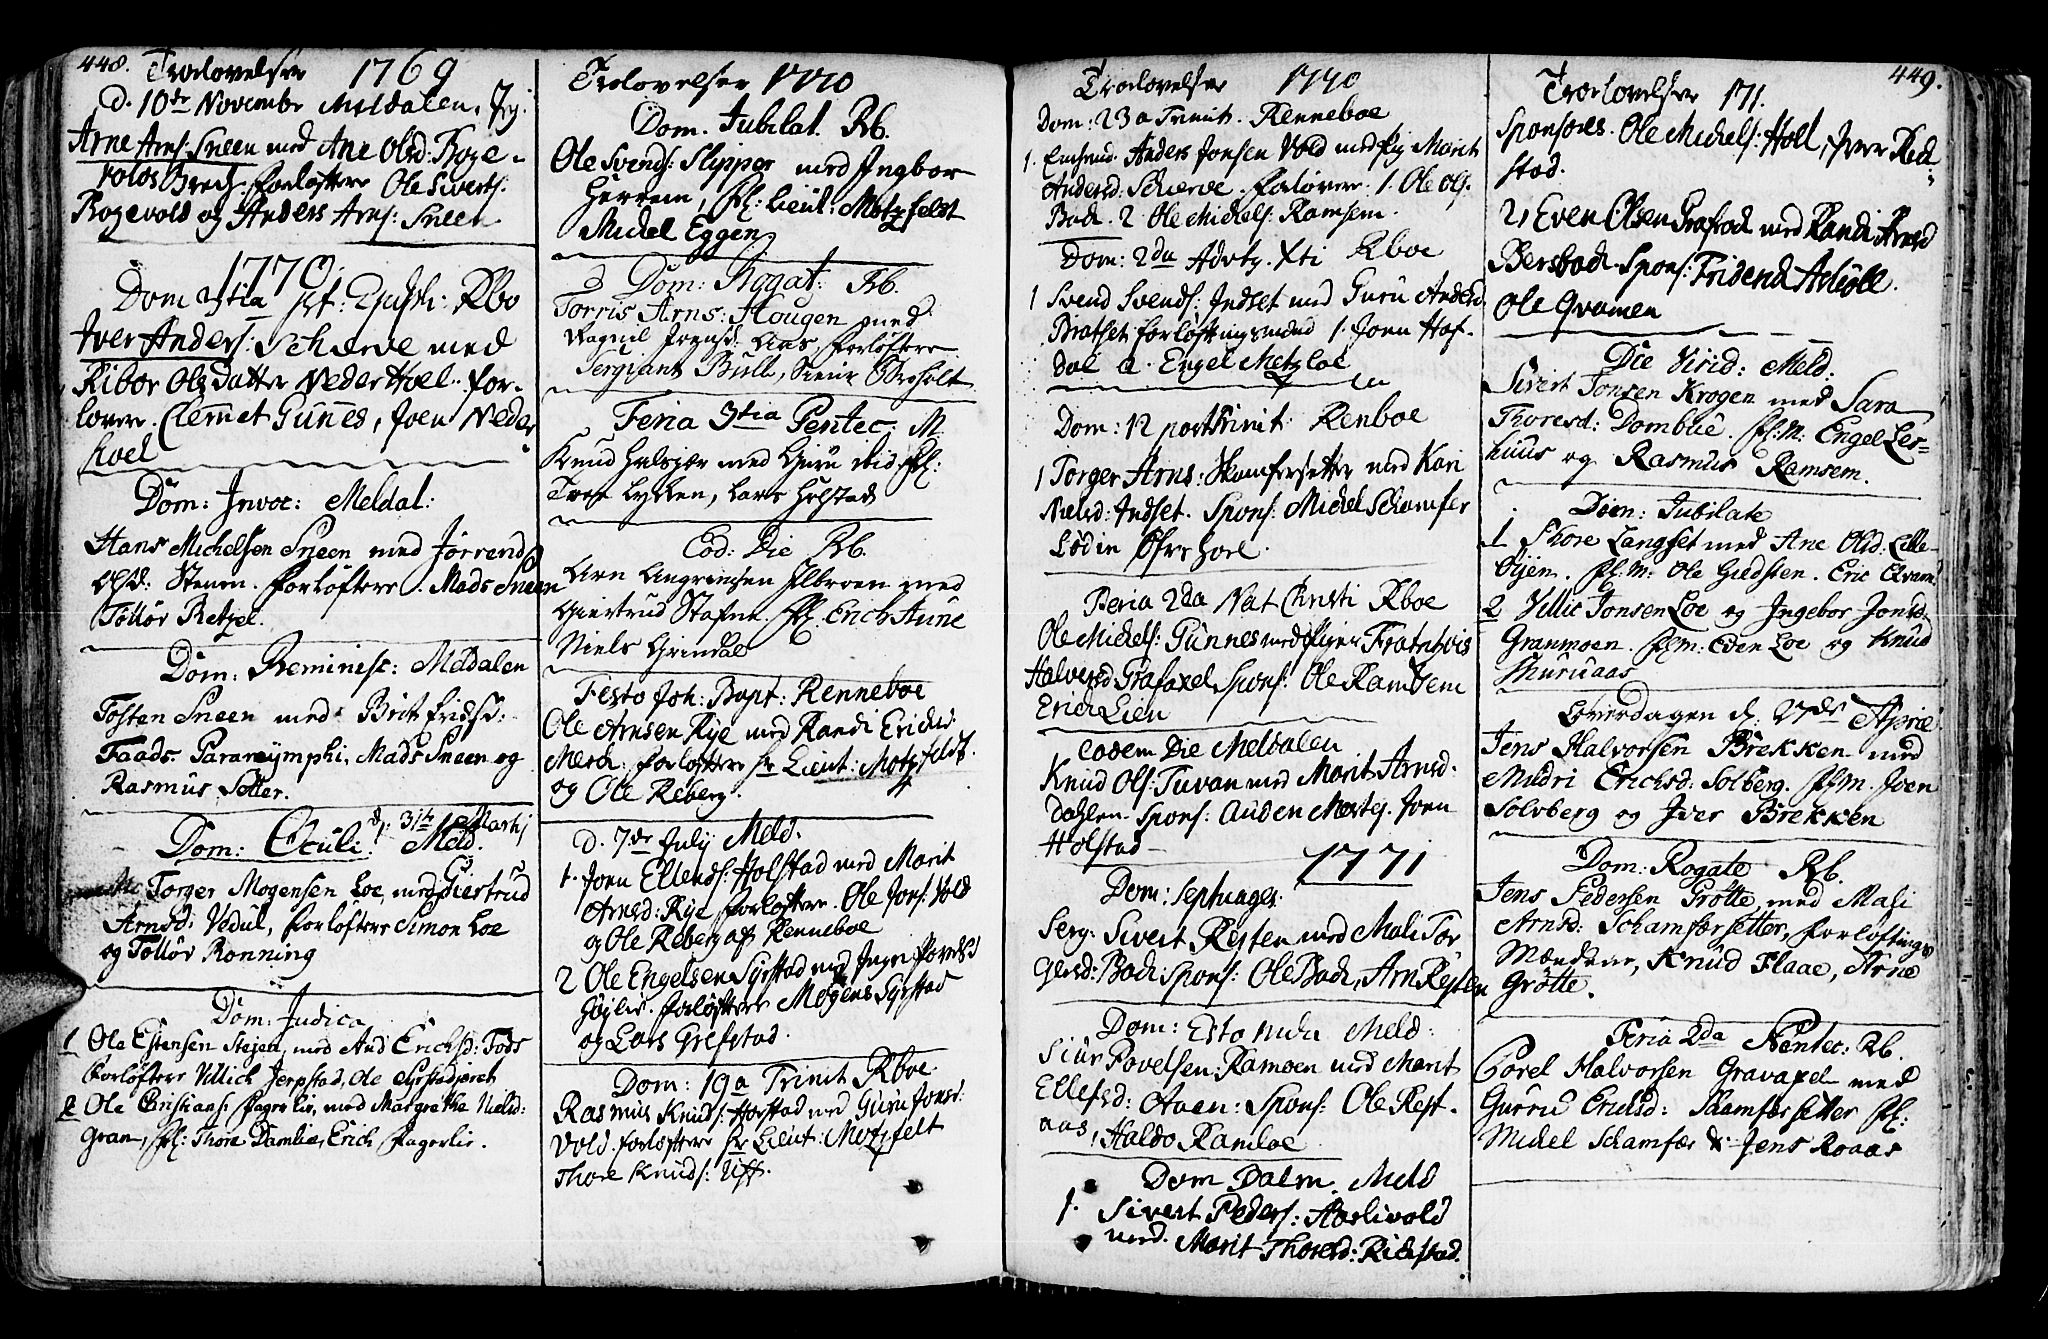 448. Trolovelser 1769
d. 10de Novembr Meldalen. Jg:
Arne Arns: Sneen med Ane Olsd: Roge-
volds Brech. Forløftere Ole Siverts:
Rogevold og Anders Arns: Sneen
1770
Dom 3tia p: Epiph: Rbo
Iver Anders: Schærve med
Ribor Olsdatter Neder Hoel. for-
lovere. Clemet Gunnes, Joen Neder
hoel
Dom: Invoc: Meldal:
Hans Michelsen Sneen med Jørrend
Olsd: Steenen. Forløftere. Mads Sneen
Tollør Retzel.
Dom: Reminisc: Meldalen
Tosten Sneen med Brit
Faads. Paranymphi, Mads Sneen og
Rasmus Setter.
Dom: Oculi. d: 31te Martj Meld.
Torger Mogensen Loe, med Giertrud
Arnsd: Vedul, forløftere Simon Loe
og Tollør Ronning
Dom: Judica
1 Ole Estensen Stejen, med Aud Erichsd: Fads
Forløftere Villich Jerpstad, Ole
2 Ole Christians: Fagerlie, med Margrethe Nielsd:
Gran, fl: Thore Damlie, Erich Fagerlie.
Trolovelser 1770
Dom. Jubilat. Rb.
Ole Svends: Slipper med Ingbor
Herrem, fl: Lieut: Motzfeldt
Michel Eggen
Dom: Rogat: Rb.
Torris Arns: Hougen med
Ragnil Joensd: Lias forløftere
Sergiant Bull, Sieur Obreholt
Feria 3tia Pentec: M.
Knud Halsær med Guru ibid. fl:
Tron Lykken, Lars Holstad
Eod: Die Rb.
Arn Angrimsen Ilbroen med
Giertrud Stafne. fl. Erich Aune
Niels Grindal
Festo Joh: Bapt: Renneboe
Ole Arnsen Rye med Randi Ericksd:
Merch: forløftere hr Lieut: Motzfeldt.
og Ole Reberg.
d. 7de July Meld.
1. Joen Ellends: Holstad med Marit
Arnsd: Rye forløftere. Ole Jons: Vold
og Ole Reberg af Renneboe
2 Ole Engelsen Syrstad med Ingri Povelsd
Højlie. forløftere Mogens Syrstad
og Lars Grefstad.
Dom: 19a Trinit Rboe
Rasmus Knuds: Horstad med Guru Jonsd:
Vold. forløftere hr Lieut: Motzfelt
Thore Knuds: Uff.
Trolovelser 1770
Dom: 23a Trinit. Renneboe
1. Anders Jonsen Vold med Pig Marit
Andersd: Schærve. forlover. 1. Ole Ols:
Bach. 2. Ole Michels: Ramsem.
Dom: 2da Advtg. Xti Rboe
1 Svend Svends: Indset med Guru Andersd
Bratset forløftningsmænd 1. Joen Hof-
dal 2. Engel Metzloe
Dom: 12 post Trinit: Renboe
1 Torger Arns: Skamfersetter med Kari
Nielsd: Indset. Spons: Michel Schamfer
Lodin Øfvrhoel.
Feria 2da Nat Christi Rboe
Ole Michels: Gunnes med
Halvorsd Grafaxel Spons: Ole Ramsem
Erich Lien
Eodem Die Meldalen
Knud Ols: Tuvan med Marit Arnsd.
Dahlen. Spons: Auden Joen
Holstad
1771
Dom: Septuages.
Serg: Sivert Resten med Mali Tor
Gersd: Bach: Spons: Ole Bach, Arn Resten
Dom: Esto mihi Meld:
Siur Povelsen Ramoen med Marit
Ellefsd: Aaen: Spons: Ole Rest-
aas, Haldo Ramloe
Dom Palm. Meld
1. Sivert Peders: Aarlivold
med. Marit Thoresd: Richstad.
449.
Trolovelser 171.
Sponsores. Ole Michels: Holl, Iver Rich
stad.
2, Even Olsen Grafrock med Randi Arnsd
Bersbach. Spons: Tridend Achiøll.
Ole Qvamen
Die Virid: Meld:
Sivert Tonsen Krogen med Sara
Thoresd: Dombue. fl: M: Engel Ler-
huus og Rasmus Ramsem.
Dom: Jubilate
1 Thore Langset med Ane Olsd: Lille-
Øjem. fl: M: Ole Gredsten. Eric Qvam
2 Villic Jonsen Loe og Ingebor Jonsd:
Granmoen. flm: Eden Loe og Knud
Muruaas
Løverdagen d: 27de Aprill
Jens Halvorsen Brekken med
Mildri Erichsd: Solberg. fl M. Joen
Solvberg og Iver Brekken
Dom: Rogate Rb.
Jens Pedersen Grøtte, med Mali
Arnsd: Schamfærsetter, forløftings
Mændene, Knud Flaae, Arne
Grøtte.
Feria 2da Pentec: Rb.
Porel Halvorsen Gravaxel med
Gurru Ericksd: Skamfærsetter fl:
Michel Schamfær & Jens Roaas